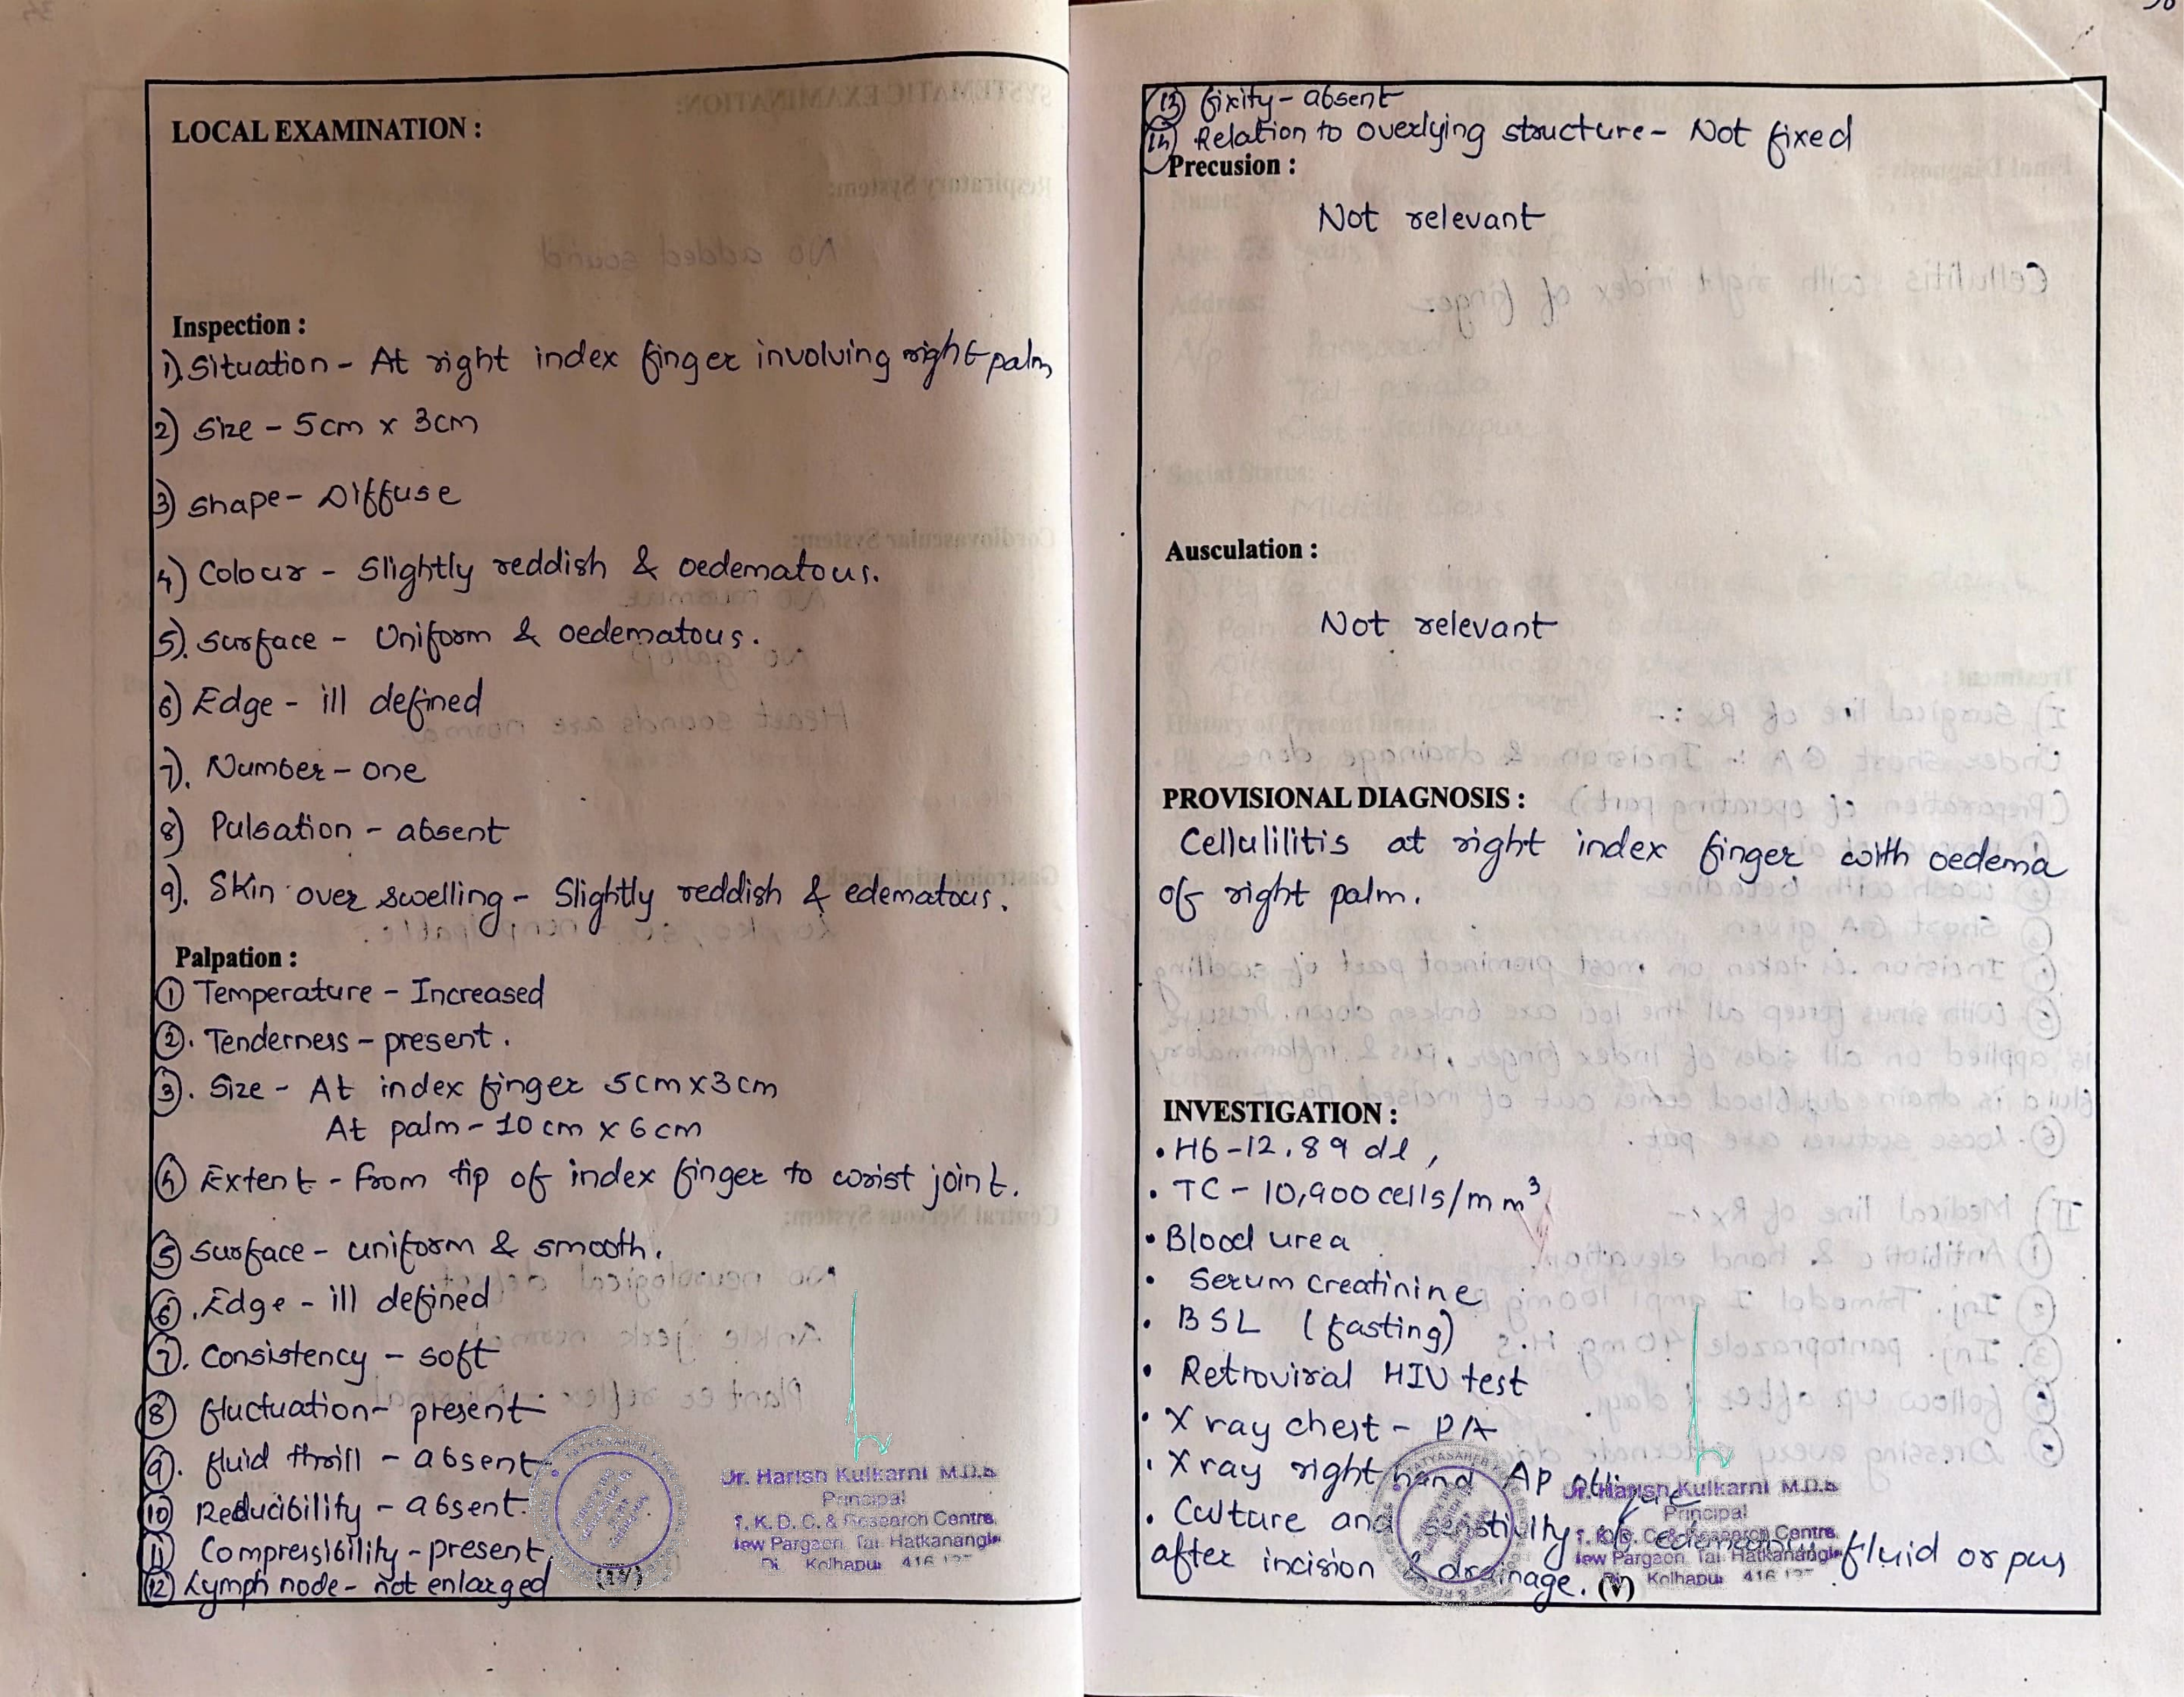 LOCAL EXAMINATION :
Inspection :
1). Situation - At right index finger involving right palm
2) Size - 5cm x 3cm
3) shape - Diffuse
4) Colour - Slightly reddish & oedematous.
5). Surface - Uniform & oedematous.
6) Edge - ill defined
7). Number - one
8) Pulsation - absent
9). Skin over swelling - Slightly reddish & edematous.
Palpation :
① Temperature - Increased
②. Tenderness - present.
③. Size - At index finger 5cm x 3cm
At palm - 10 cm x 6 cm
④ Extent - From tip of index finger to wrist joint.
⑤ Surface - uniform & smooth.
⑥. Edge - ill defined
⑦. Consistency - soft
⑧ fluctuation - present
⑨. fluid thrill - absent
⑩ Reducibility - absent.
⑪ Compressibility - present,
⑫ Lymph node - not enlarged
(IV)
Dr. Harish Kulkarni M.D.S
Principal
T. K. D. C. & Research Centre,
New Pargaon, Tal. Hatkanangle
Di. Kolhapur 416 137
⑬ fixity - absent
⑭ Relation to overlying structure - Not fixed
Precusion :
Not relevant
Ausculation :
Not relevant
PROVISIONAL DIAGNOSIS :
Cellulilitis at right index finger with oedema
of right palm.
INVESTIGATION :
• Hb - 12.89 dl,
• TC - 10,900 cells/mm³
• Blood urea
• Serum creatinine
• BSL (fasting)
• Retroviral HIV test
• X ray chest - PA
• X ray right hand AP
• Culture and senstivity of fluid or pus
after incision & drainage. (V)
Dr. Harish Kulkarni M.D.S
Principal
T. K. D. C. & Research Centre,
New Pargaon, Tal. Hatkanangle
Di. Kolhapur 416 137